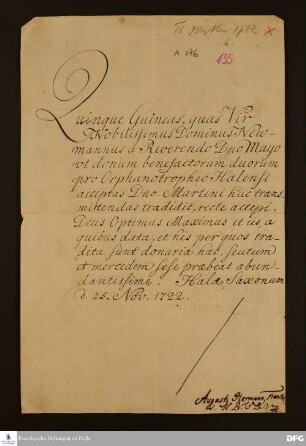 A 176
135
Quinque Guineas, quas Vir
Nobilissimus Dominus New-
mannus a Reverendo Dno Mayo
vt donum benefactorum duorum
pro Orphanotropheo Halensi
acceptas Dno Martini huc trans-
mittendas tradidit, recte accepi.
Deus Optimus Maximus et iis, a
quibus data, et his per quos tra-
dita sunt donaria haec, scutum
et mercedem sese præbeat abun-
dantissime. Halæ Saxonum
d. 25. Nov. 1722.
August. Hermann.
Franckesche Stiftungen zu Halle
DFG